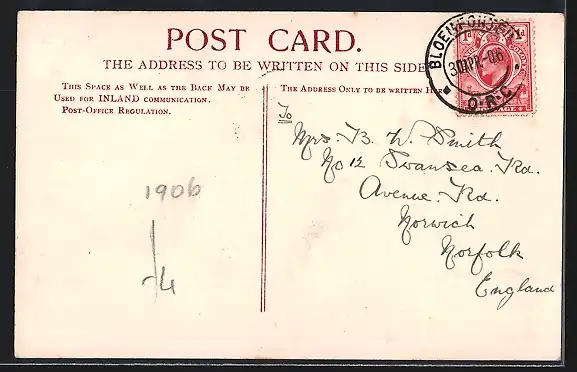 POST CARD.
THE ADDRESS TO BE WRITTEN ON THIS SIDE
THIS SPACE AS WELL AS THE BACK MAY BE
USED FOR INLAND COMMUNICATION.
POST-OFFICE REGULATION.
THE ADDRESS ONLY TO BE WRITTEN HERE
BLOEMFONTEIN
30 APR. 06
O.R.C
1d
To
Mrs. B. W. Smith
No 12 Swansea. Rd.
Avenue. Rd.
Norwich
Norfolk
England
1906